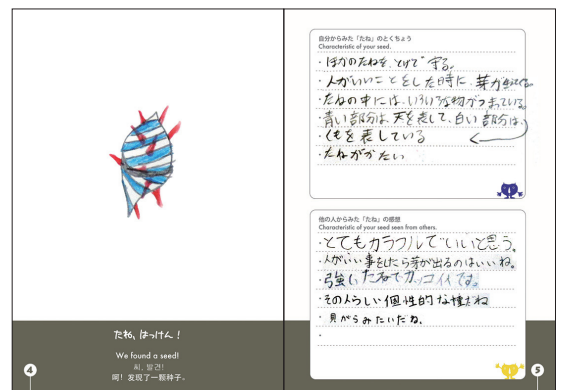 たね、はっけん！
We found a seed!
씨, 발견!
呵！发现了一颗种子。
4
自分からみた「たね」のとくちょう
Characteristic of your seed.
・ほかのたねを、とげで守る。
・人がいいことをした時に、芽が生えてくる。
・たねの中には、いろいろな物がつまっている。
・青い部分は、天を表して、白い部分は、
・くもを表している
・たねがかたい
他の人からみた「たね」の感想
Characteristic of your seed seen from others.
・とてもカラフルでいいと思う。
・人がいい事をしたら芽が出るのはいいね。
・強いたねでカッコイイです。
・その人らしい個性的な種だね
・貝がらみたいだね。
・
5